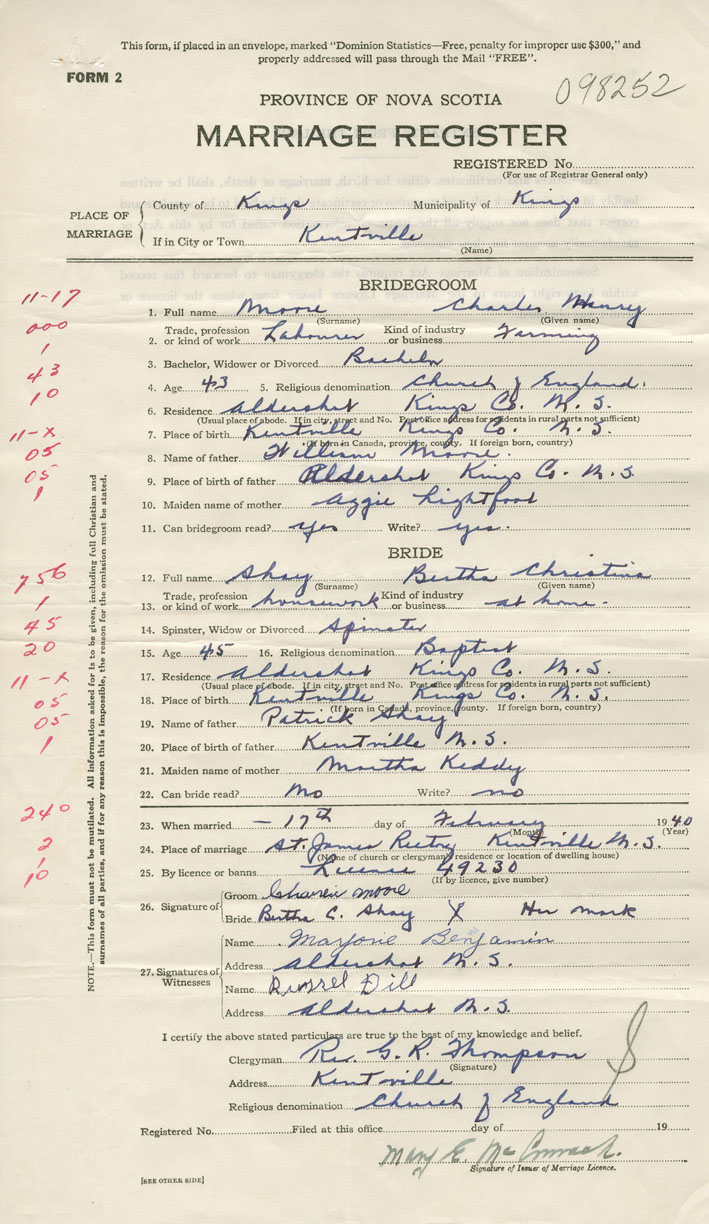 This form, if placed in an envelope, marked "Dominion Statistics—Free, penalty for improper use $300," and
properly addressed will pass through the Mail "FREE".
FORM 2
098252
PROVINCE OF NOVA SCOTIA
MARRIAGE REGISTER
REGISTERED No.
(For use of Registrar General only)
PLACE OF MARRIAGE
County of Kings Municipality of Kings
If in City or Town Kentville
(Name)
BRIDEGROOM
11-17
1. Full name Moore Charles Henry
(Surname) (Given name)
000
2. Trade, profession or kind of work Labourer Kind of industry or business Farming
1
3. Bachelor, Widower or Divorced Bachelor
43
4. Age 43 5. Religious denomination Church of England.
10
6. Residence Aldershot Kings Co. N.S.
(Usual place of abode. If in city, street and No. Post office address for residents in rural parts not sufficient)
11-X
7. Place of birth Kentville Kings Co. N.S.
(If born in Canada, province, county. If foreign born, country)
05
8. Name of father William Moore.
05
9. Place of birth of father Aldershot Kings Co. N.S
1
10. Maiden name of mother Aggie Lightfoot
11. Can bridegroom read? yes Write? yes.
BRIDE
756
12. Full name Shay Bertha Christina
(Surname) (Given name)
1
13. Trade, profession or kind of work housework Kind of industry or business at home.
45
14. Spinster, Widow or Divorced Spinster
20
15. Age 45 16. Religious denomination Baptist
11-X
17. Residence Aldershot Kings Co. N.S.
(Usual place of abode. If in city, street and No. Post office address for residents in rural parts not sufficient)
05
18. Place of birth Kentville Kings Co. N.S.
(If born in Canada, province, county. If foreign born, country)
05
19. Name of father Patrick Shay
1
20. Place of birth of father Kentville N.S.
21. Maiden name of mother Martha Keddy
22. Can bride read? No Write? no
240
23. When married — 17th day of February 1940
(Month) (Year)
2
24. Place of marriage St. James Rectry Kentville N.S.
(Name of church or clergyman's residence or location of dwelling house)
1
10
25. By licence or banns License 49230
(If by licence, give number)
26. Signature of
Groom Moore
Bride Bertha C. Shay X Her mark
27. Signatures of Witnesses
Name Marjorie Benjamin
Address Aldershot N.S.
Name Russel Dill
Address Aldershot N.S.
I certify the above stated particulars are true to the best of my knowledge and belief.
Clergyman Rev. G. R. Thompson
(Signature)
Address Kentville
Religious denomination Church of England
Registered No. Filed at this office day of 19
Mary E. McCormack.
Signature of Issuer of Marriage Licence.
[SEE OTHER SIDE]
NOTE.—This form must not be mutilated. All information asked for is to be given, including full Christian and
surnames of all parties, and if for any reason this is impossible, the reason for the omission must be stated.